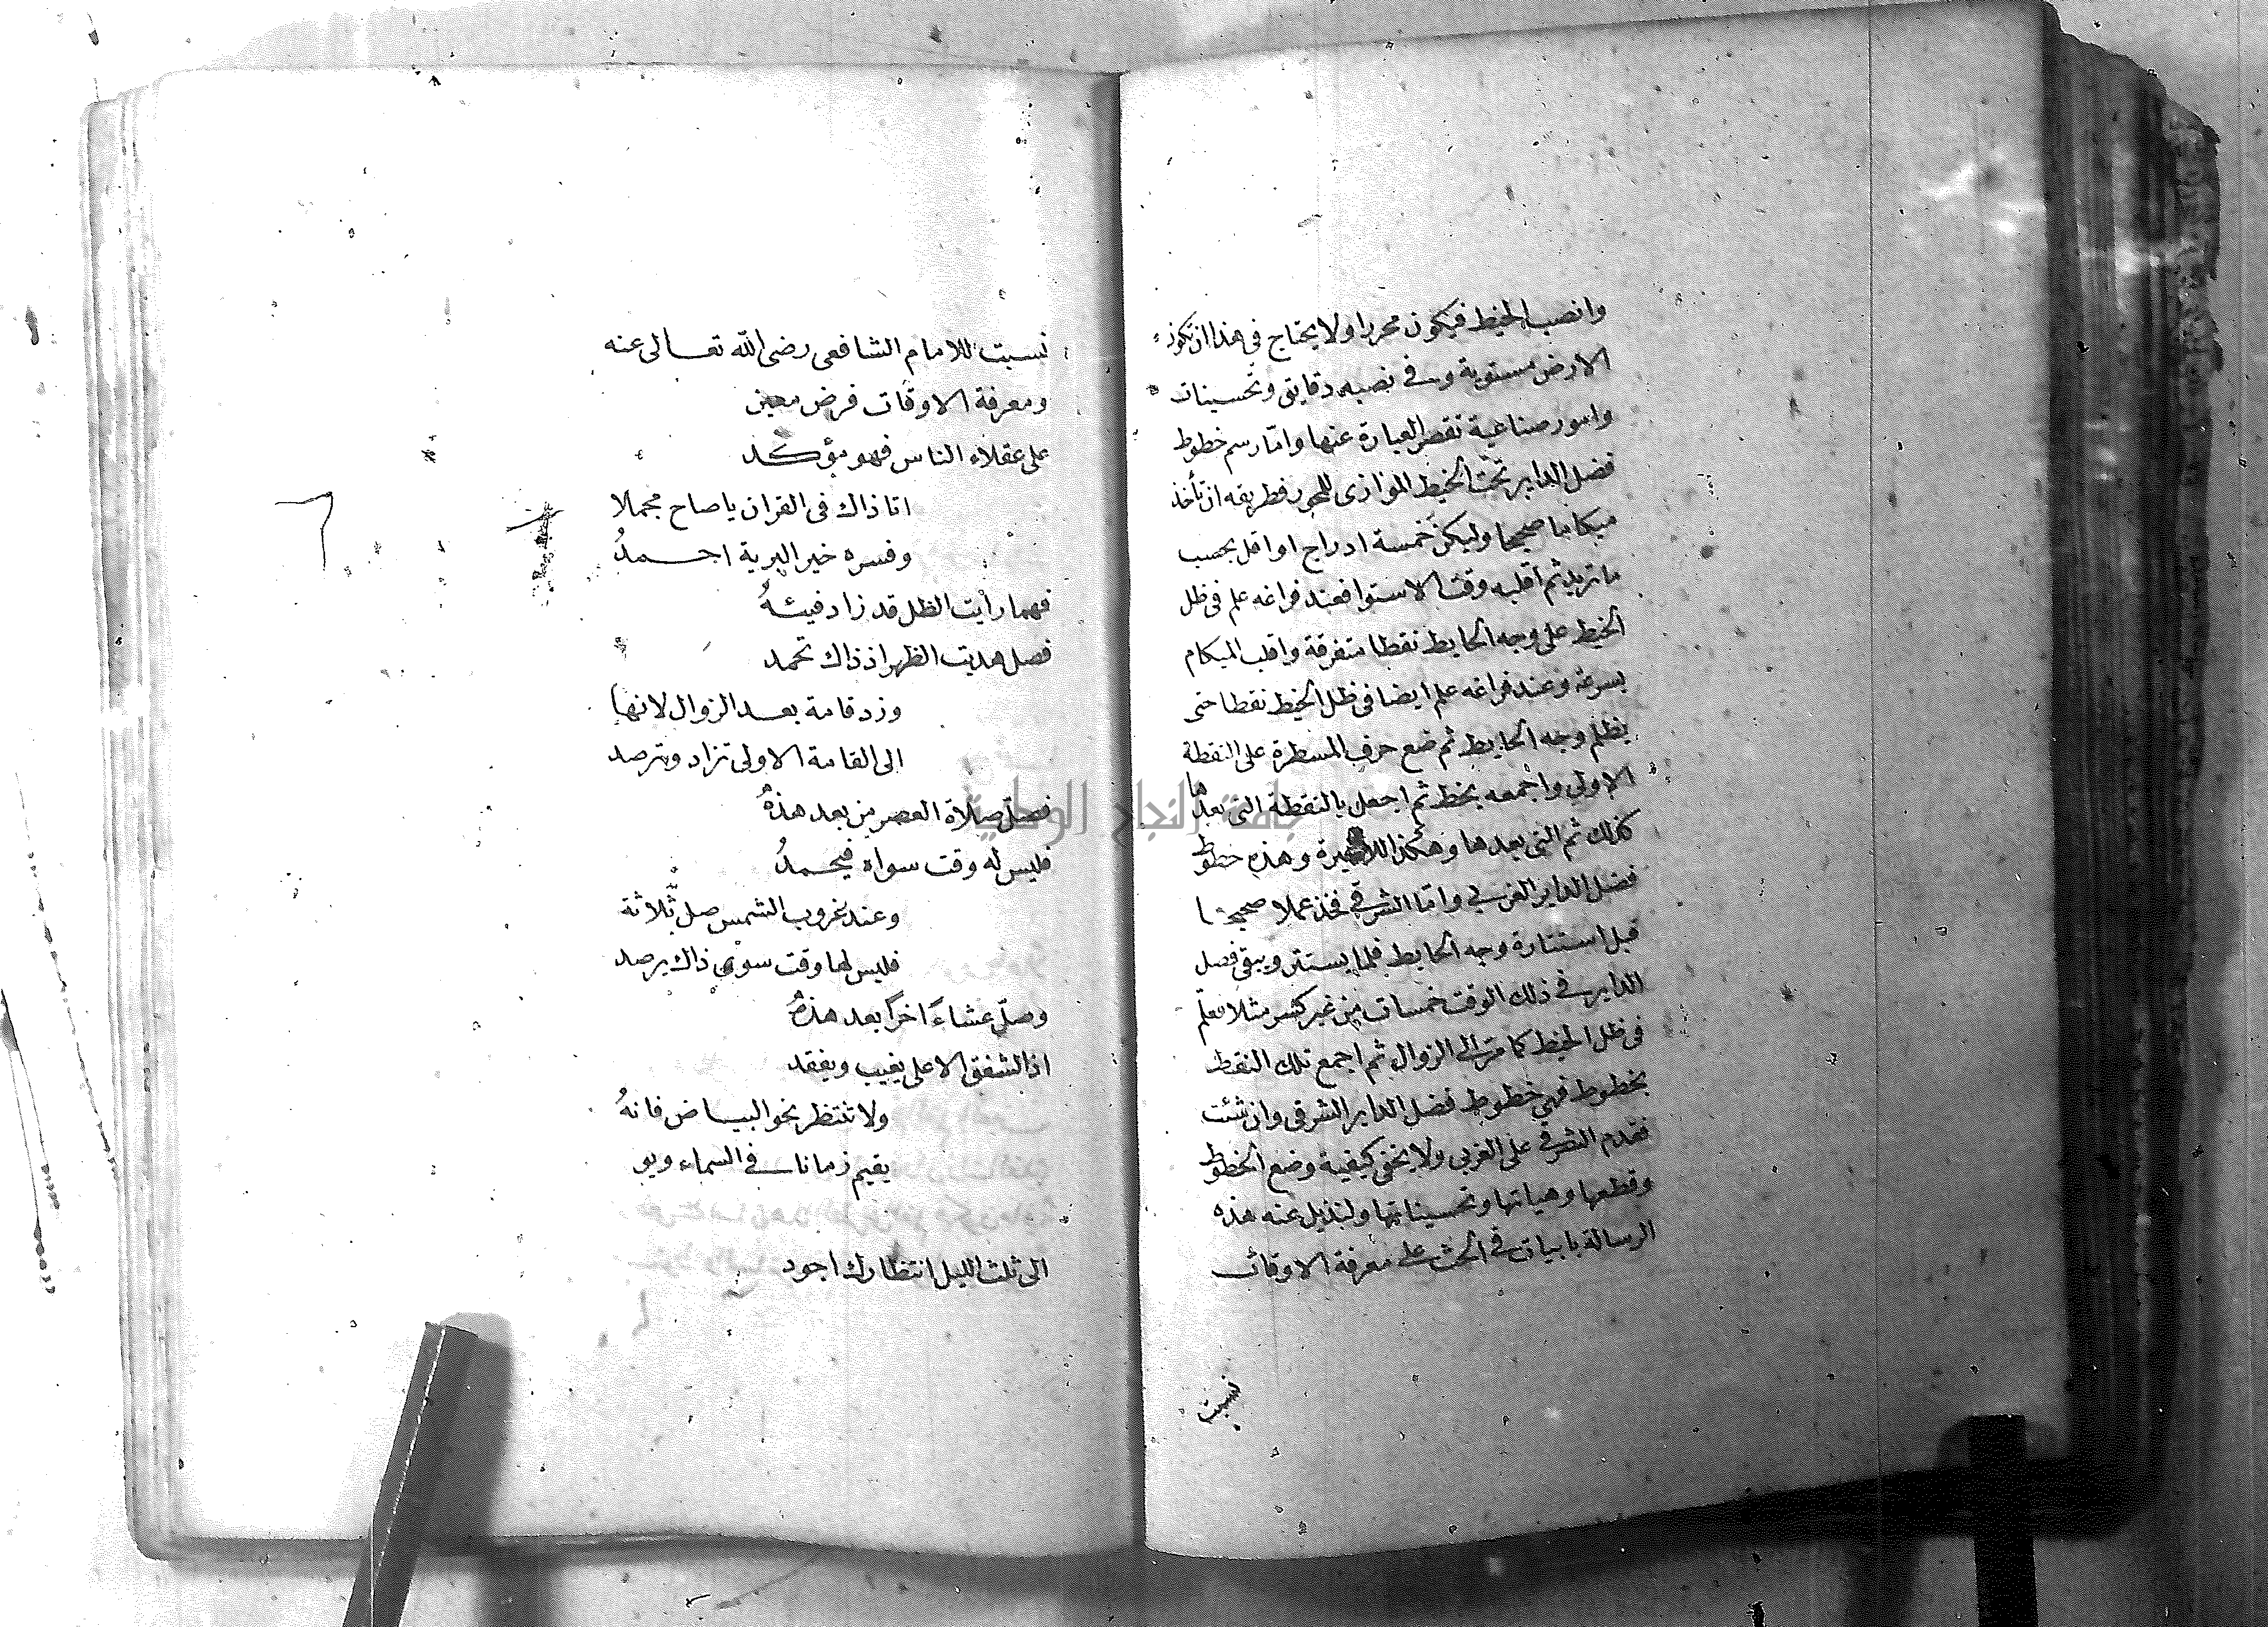 وانصب الخيط فيكون محررا ولا يحتاج في هذا ان تكون
الارض مستوية وفي نصبه دقايق وتحسينات
وامور صناعية تقصر العبارة عنها واما رسم خطوط
فضل الداير تحت الخيط الموازى للمحور فطريقه ان تأخذ
ميكاما صحيحا وليكن خمسة ادراج او اقل بحسب
ما تريد ثم اقلبه وقت الاستوا فعند فراغه علم فى ظل
الخيط على وجه الحايط نقطا متفرقة واقلب الميكام
بسرعة وعند فراغه علم ايضا فى ظل الخيط نقطا حتى
يظلم وجه الحايط ثم ضع حرف المسطرة على النقطة
الاولى واجمعه بخط ثم اجعل بالنقطة التى بعدها
كذلك ثم التى بعدها وهكذا للاخيرة وهذه خطوط
فضل الداير الغربي واما الشرقي فخذ عملا صحيحا
قبل استنارة وجه الحايط فلما يستنر ويبقى فضل
الداير في ذلك الوقت خمسات من غير كسر مثلا فعلم
فى ظل الخيط كما مر الى الزوال ثم اجمع تلك النقط
بخطوط فهي خطوط فضل الداير الشرقى وان شئت
فقدم الشرقي على الغربى ولا يخفى كيفية وضع الخطوط
وقطعها وهياتها وتحسيناتها ولنذيل عنه هذه
الرسالة بابيات في الحث على معرفة الاوقات
نسبت
نسبت للامام الشافعى رضى الله تعالى عنه
ومعرفة الاوقات فرض معين
على عقلاء الناس فهو مؤكد
اتا ذاك فى القران يا صاح مجملا
وفسره خير البرية احمدُ
فهما رأيت الظل قد زاد فيئهُ
فصل هديت الظهر اذ ذاك تحمد
وزد قامة بعد الزوال لانها
الى القامة الاولى تزاد وترصد
فصلّ صلاة العصر من بعد هذهُ
فليس له وقت سواه فيحمدُ
وعند غروب الشمس صل ثلاثة
فليس لها وقت سوى ذاك يرصد
وصلّ عشاءً اخراً بعد هذهُ
اذا الشفق الاعلى يغيب ويفقد
ولا تنتظر نحو البياض فانهُ
يقيم زمانا في السماء ويو
الى ثلث الليل انتظارك اجود
جامعة النجاح الوطنية